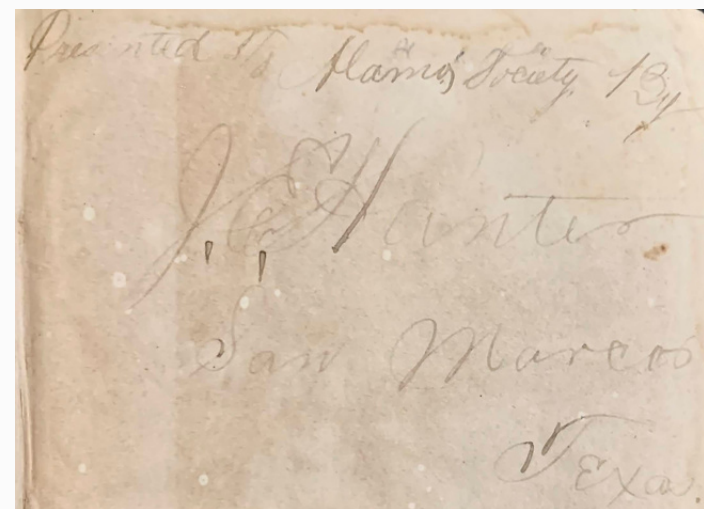 Presented To Alamo Society By
J. E. Hunter
San Marcos
Texas